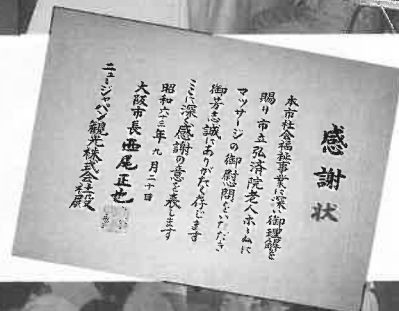 感謝状
本市社会福祉事業に深い御理解を
賜り市立弘済院老人ホームに
マッサージの御慰問をいただき
御芳志誠にありがたく存じます
ここに深く感謝の意を表します
昭和六十三年九月二十日
大阪市長 西尾正也
ニュージャパン観光株式会社殿